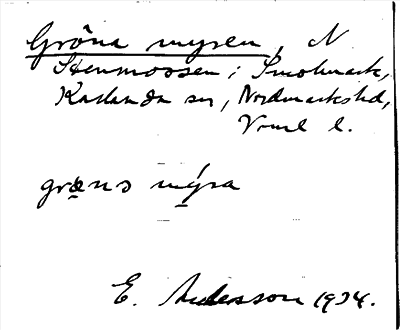 Gröna myren, N
Stenmossen i Smolmark,
Karlanda sn, Nordmarks hd,
Vrml l.
græno mýra
E. Andersson 1934.